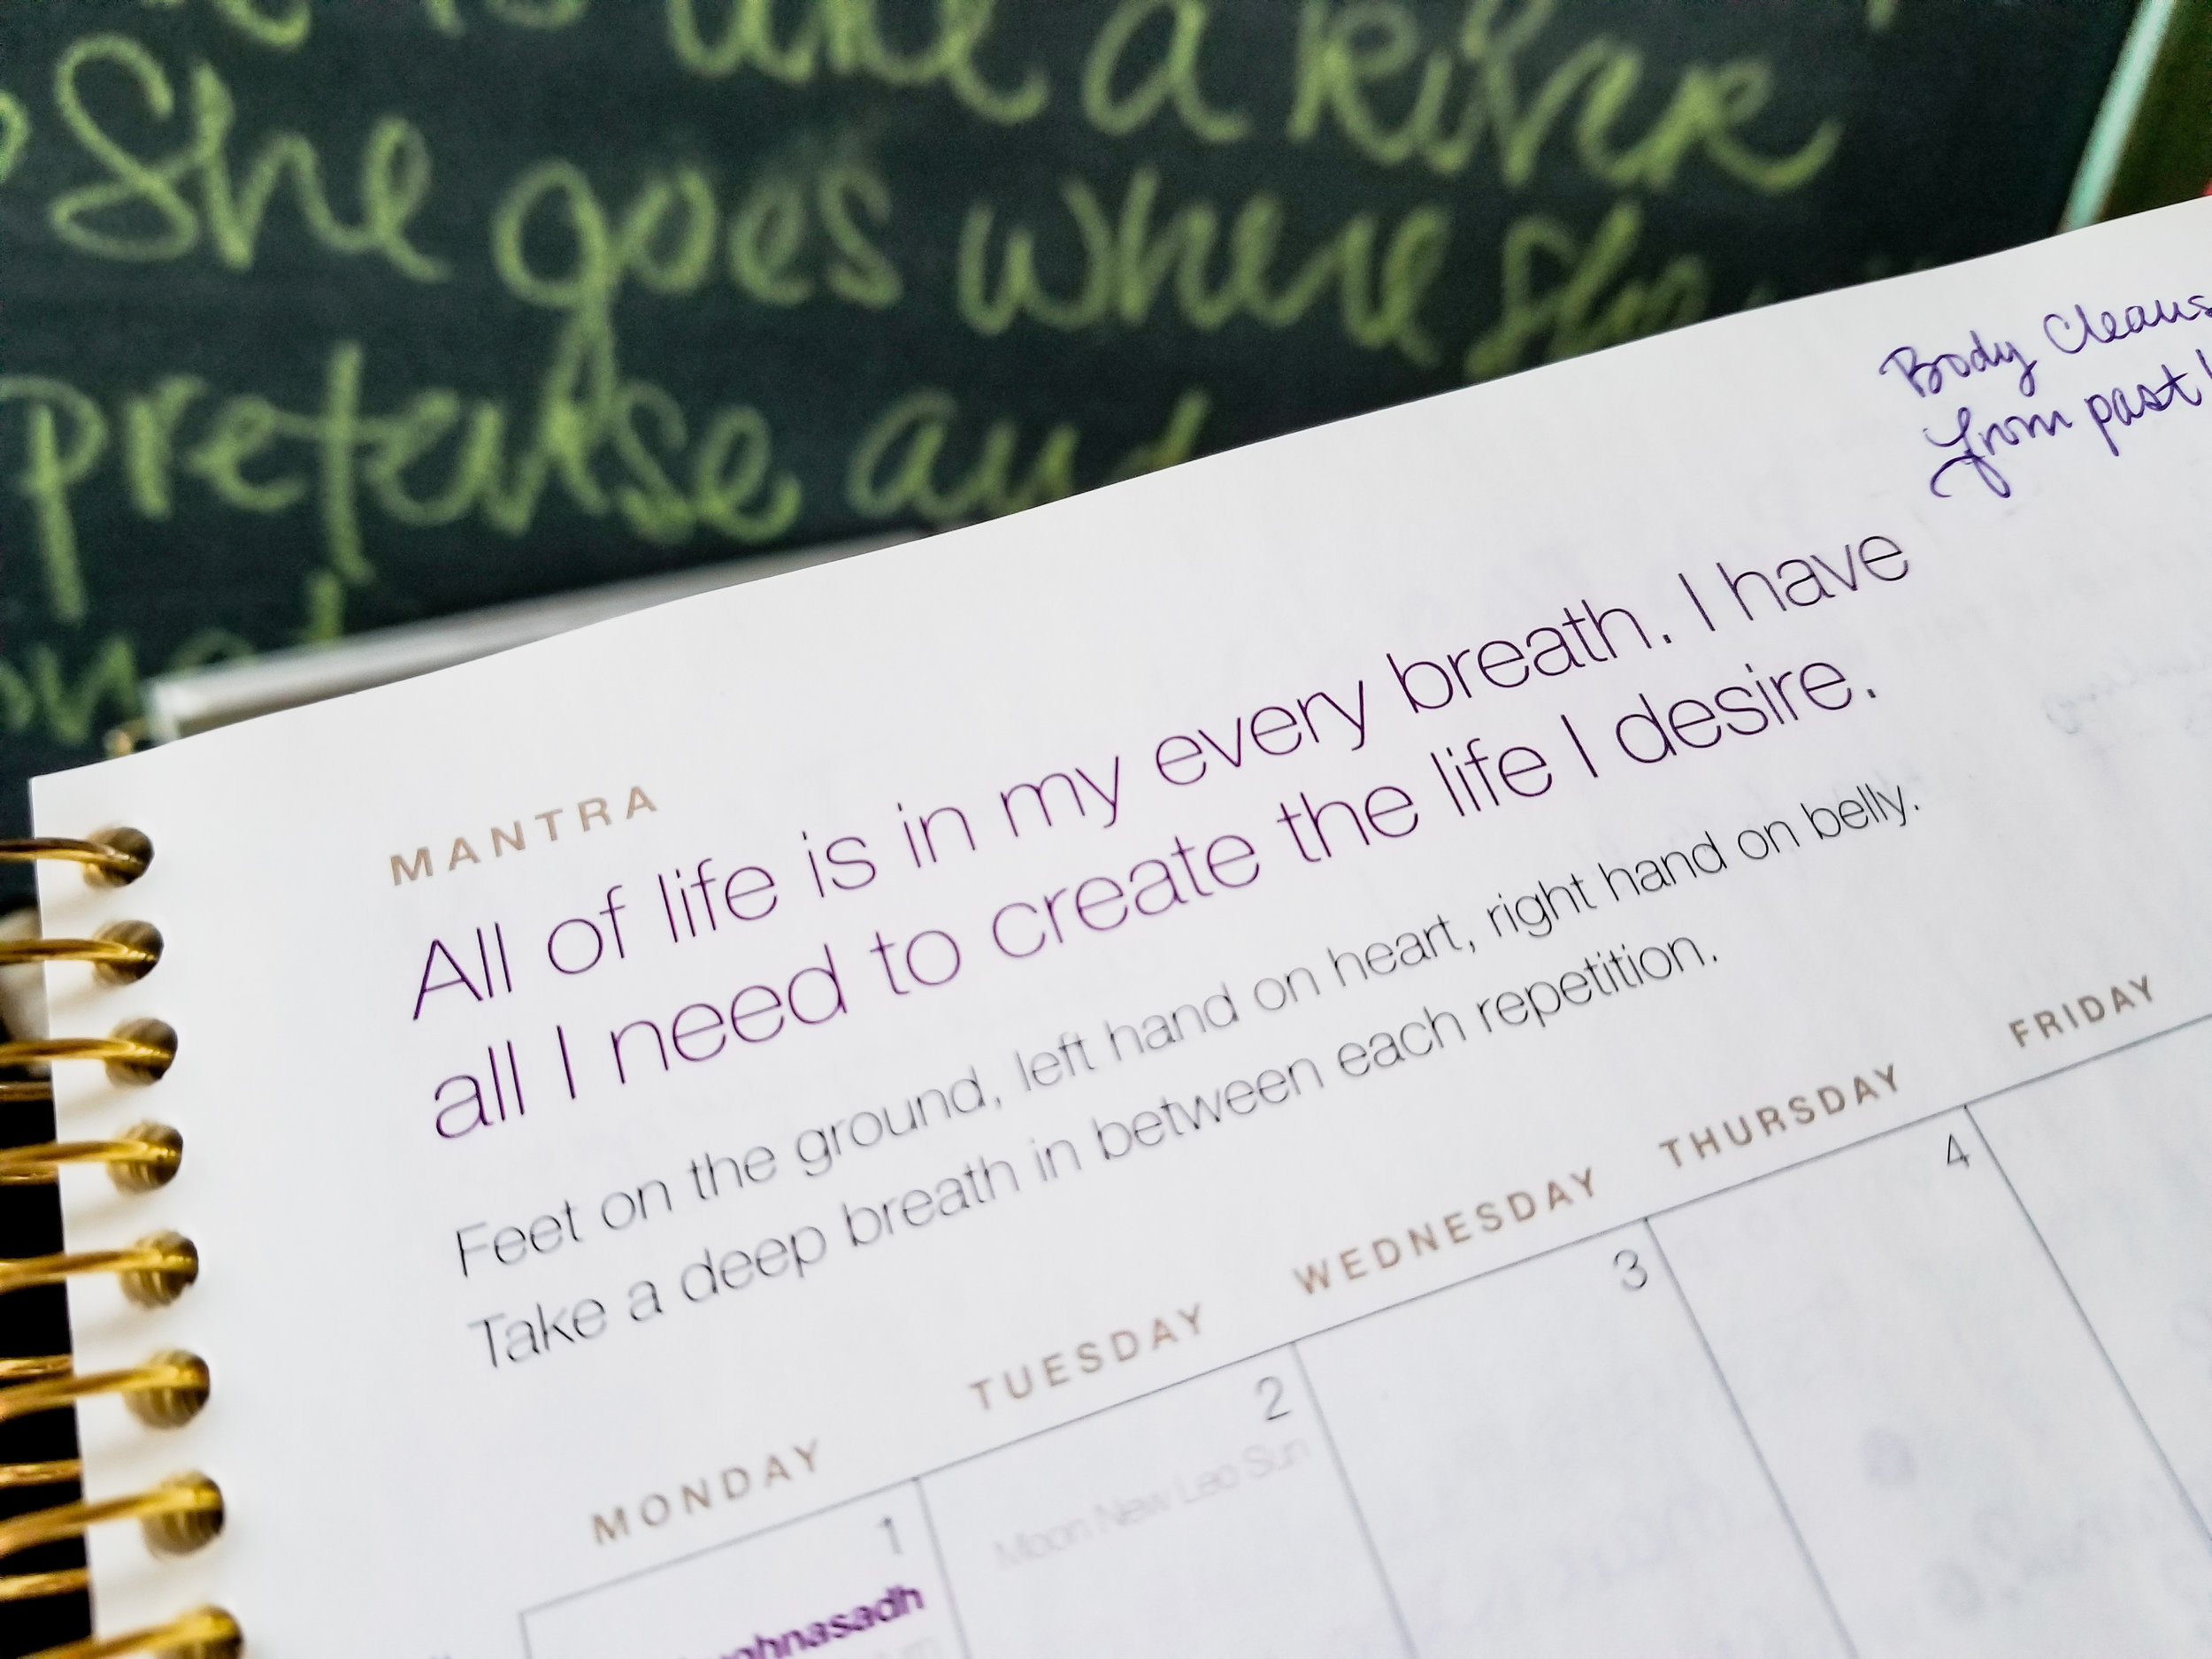 like a River
She goes where she
pretense and
Body Cleans
from past!
MANTRA
All of life is in my every breath. I have
all I need to create the life I desire.
Feet on the ground, left hand on heart, right hand on belly.
Take a deep breath in between each repetition.
MONDAY TUESDAY WEDNESDAY THURSDAY FRIDAY
1 2 3 4
ghnasadh
Moon New Leo Sun